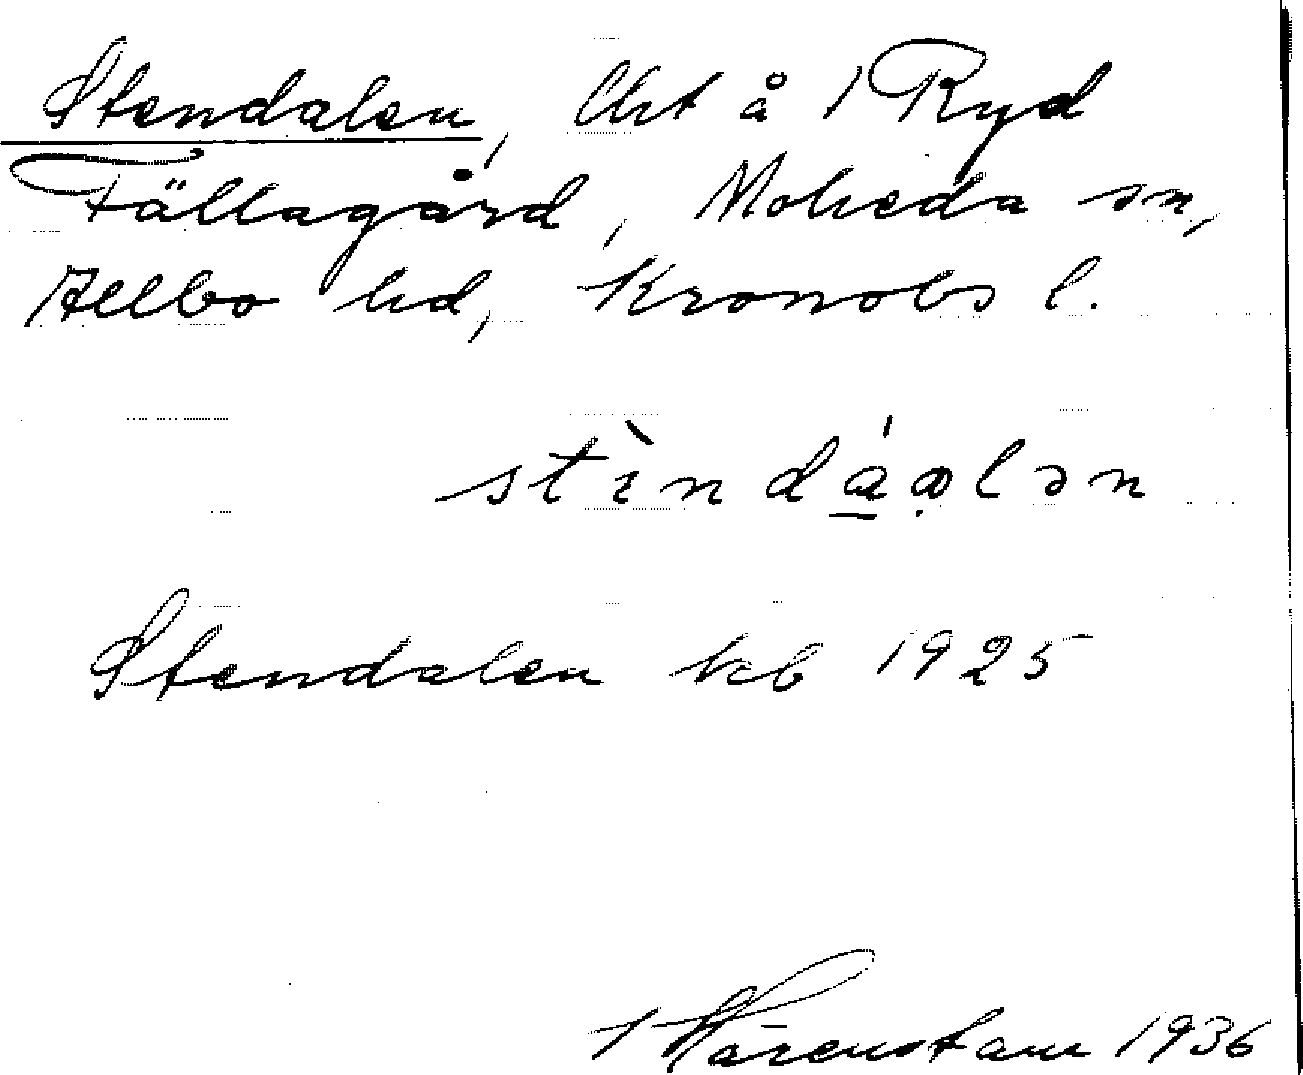 Stendalen, lht å 1 Ryd
Fällagård, Moheda sn,
Allbo hd, Kronobs l.
stìndáɑlən
Stendalen kb 1925
Härenstam 1936